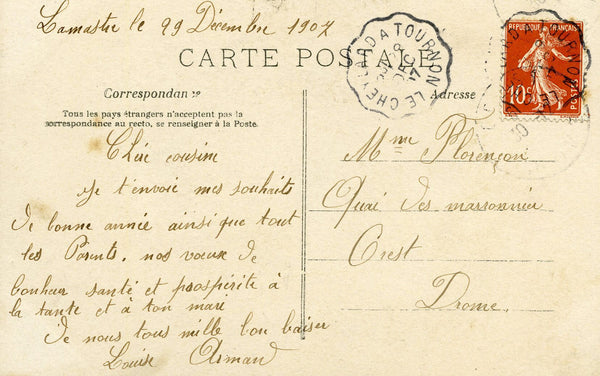 Lamastre le 29 Décembre 1907
CARTE POSTALE
LE CHEYLARD A TOURNON
Correspondance
Tous les pays étrangers n'acceptent pas la
correspondance au recto, se renseigner à la Poste.
Adresse
10c
POSTES
Chère cousine
Je t'envoie mes souhaits
de bonne année ainsi que tout
les Parents, nos vœux de
bonheur santé et prospérité à
la tante et à ton mari
De nous tous mille bon baiser
Louise Armand
Mme Florençon
Quai des marronnier
Crest
Drome